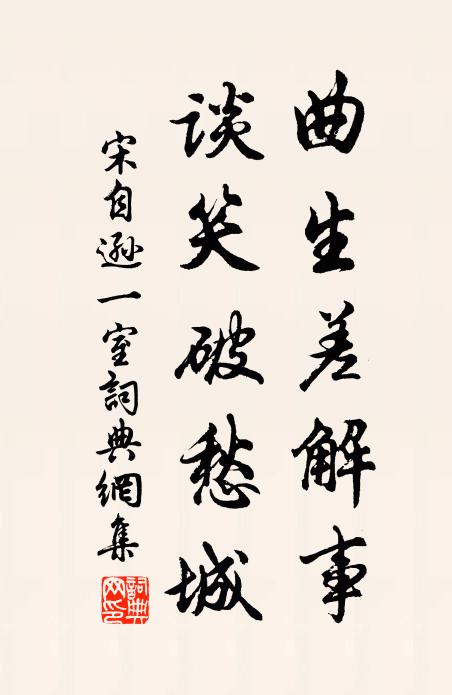 曲生差解事
談笑破愁城
宋自遜一室詞典網集
詞典網印